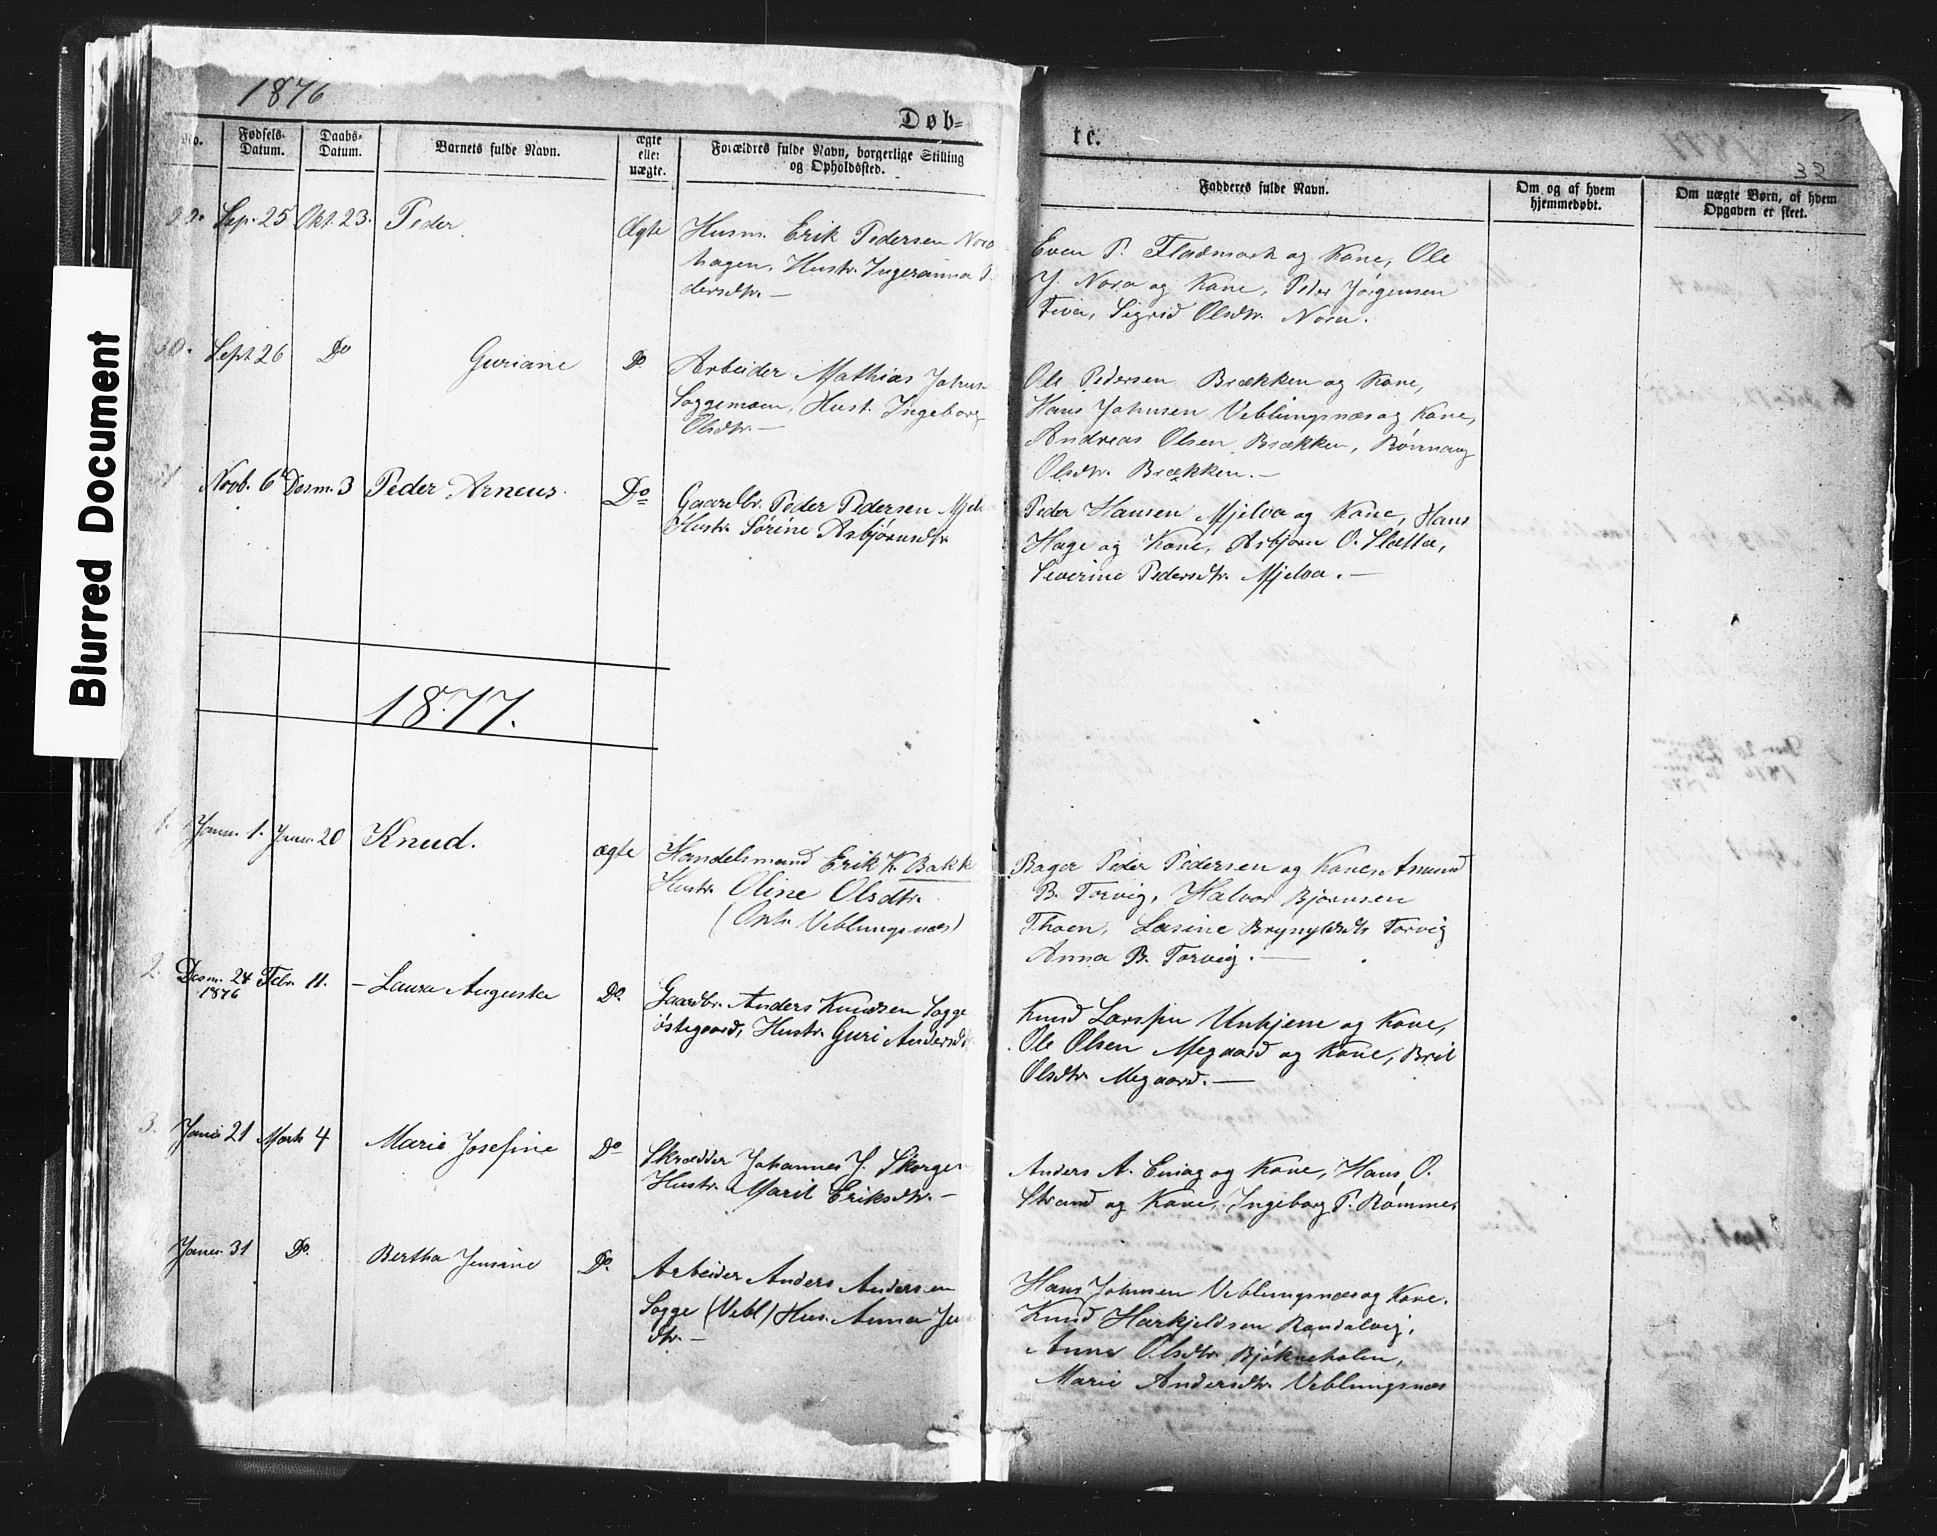 Blurred Document
1876
Døb-
No.
Fødsels-
Datum.
Daabs-
Datum.
Barnets fulde Navn.
ægte
eller
uægte.
Forældres fulde Navn, borgerlige Stilling
og Opholdssted.
29. Sep. 25 Okt. 23. Peder Ægte Husm. Erik Pedersen Nora
hagen, Hustr. Ingeranna P.
dersdtr. —
30. Sept 26 Do Guriane Do Arbeider Mathias Johns.
Soggemoen, Hust. Ingeborg
Olsdtr. —
31 Novb. 6 Desm. 3 Peder Arneus. Do Gaardbr. Peder Pedersen Mjel
Hustr. Sørine Asbjørnsdtr
1877.
1. Janu. 1. Janu. 20 Knud. ægte Handelsmand Erik K. Bakk
Hustr. Oline Olsdtr.
(Veblungsnæs)
2. Desm. 24 Febr. 11. – Laura Augusta Do. Gaardbr. Anders Knudsen Sogge
1876
østegaard, Hustr. Guri Andersdt
3. Janu 21 Marts 4 Marie Josefine Do Skrædder Johannes J. Skorge
Hustr. Marit Eriksdtr. —
Janu. 31 Do. Bertha Jensine Do. Arbeider Anders Andersen
Sogge (Vebl) Hus. Anna Je
dtr. —
te.
32
Fadderes fulde Navn.
Om og af hvem
hjemmedøbt.
Om uægte Børn, af hvem
Opgaven er skeet.
Even P. Fladmark og Kone, Ole
J. Nora og Kone, Peder Jørgensen
Fiva, Sigrid Olsdtr. Nora.
Ole Pedersen Brækken og Kone,
Hans Johnsen Veblungsnæs og Kone,
Andreas Olsen Brækken, Rønnaug
Olsdtr. Brækken. —
Peder Hansen Mjelva og Kone, Hans
Hage og Kone, Asbjørn O. Slette,
Severine Pedersdtr. Mjelva. —
Bager Peder Pedersen og Kone, Asmund
B. Torvig, Halvor Bjørnsen
Thoen, Lasine Brynyldsdtr Torvig
Anna B. Torvig. —
Knud Larssen Unhjem og Kone,
Ole Olsen Megaard og Kone, Brit
Olsdtr. Megaard. —
Anders A. og Kone, Hans O.
Strand og Kone, Ingeborg P. Rømmes
Hans Johnsen Veblungsnæs og Kone.
Knud Harkjeldsen Randalvig,
Anne Olsdtr.
Marie Andersdtr. Veblungsnæs